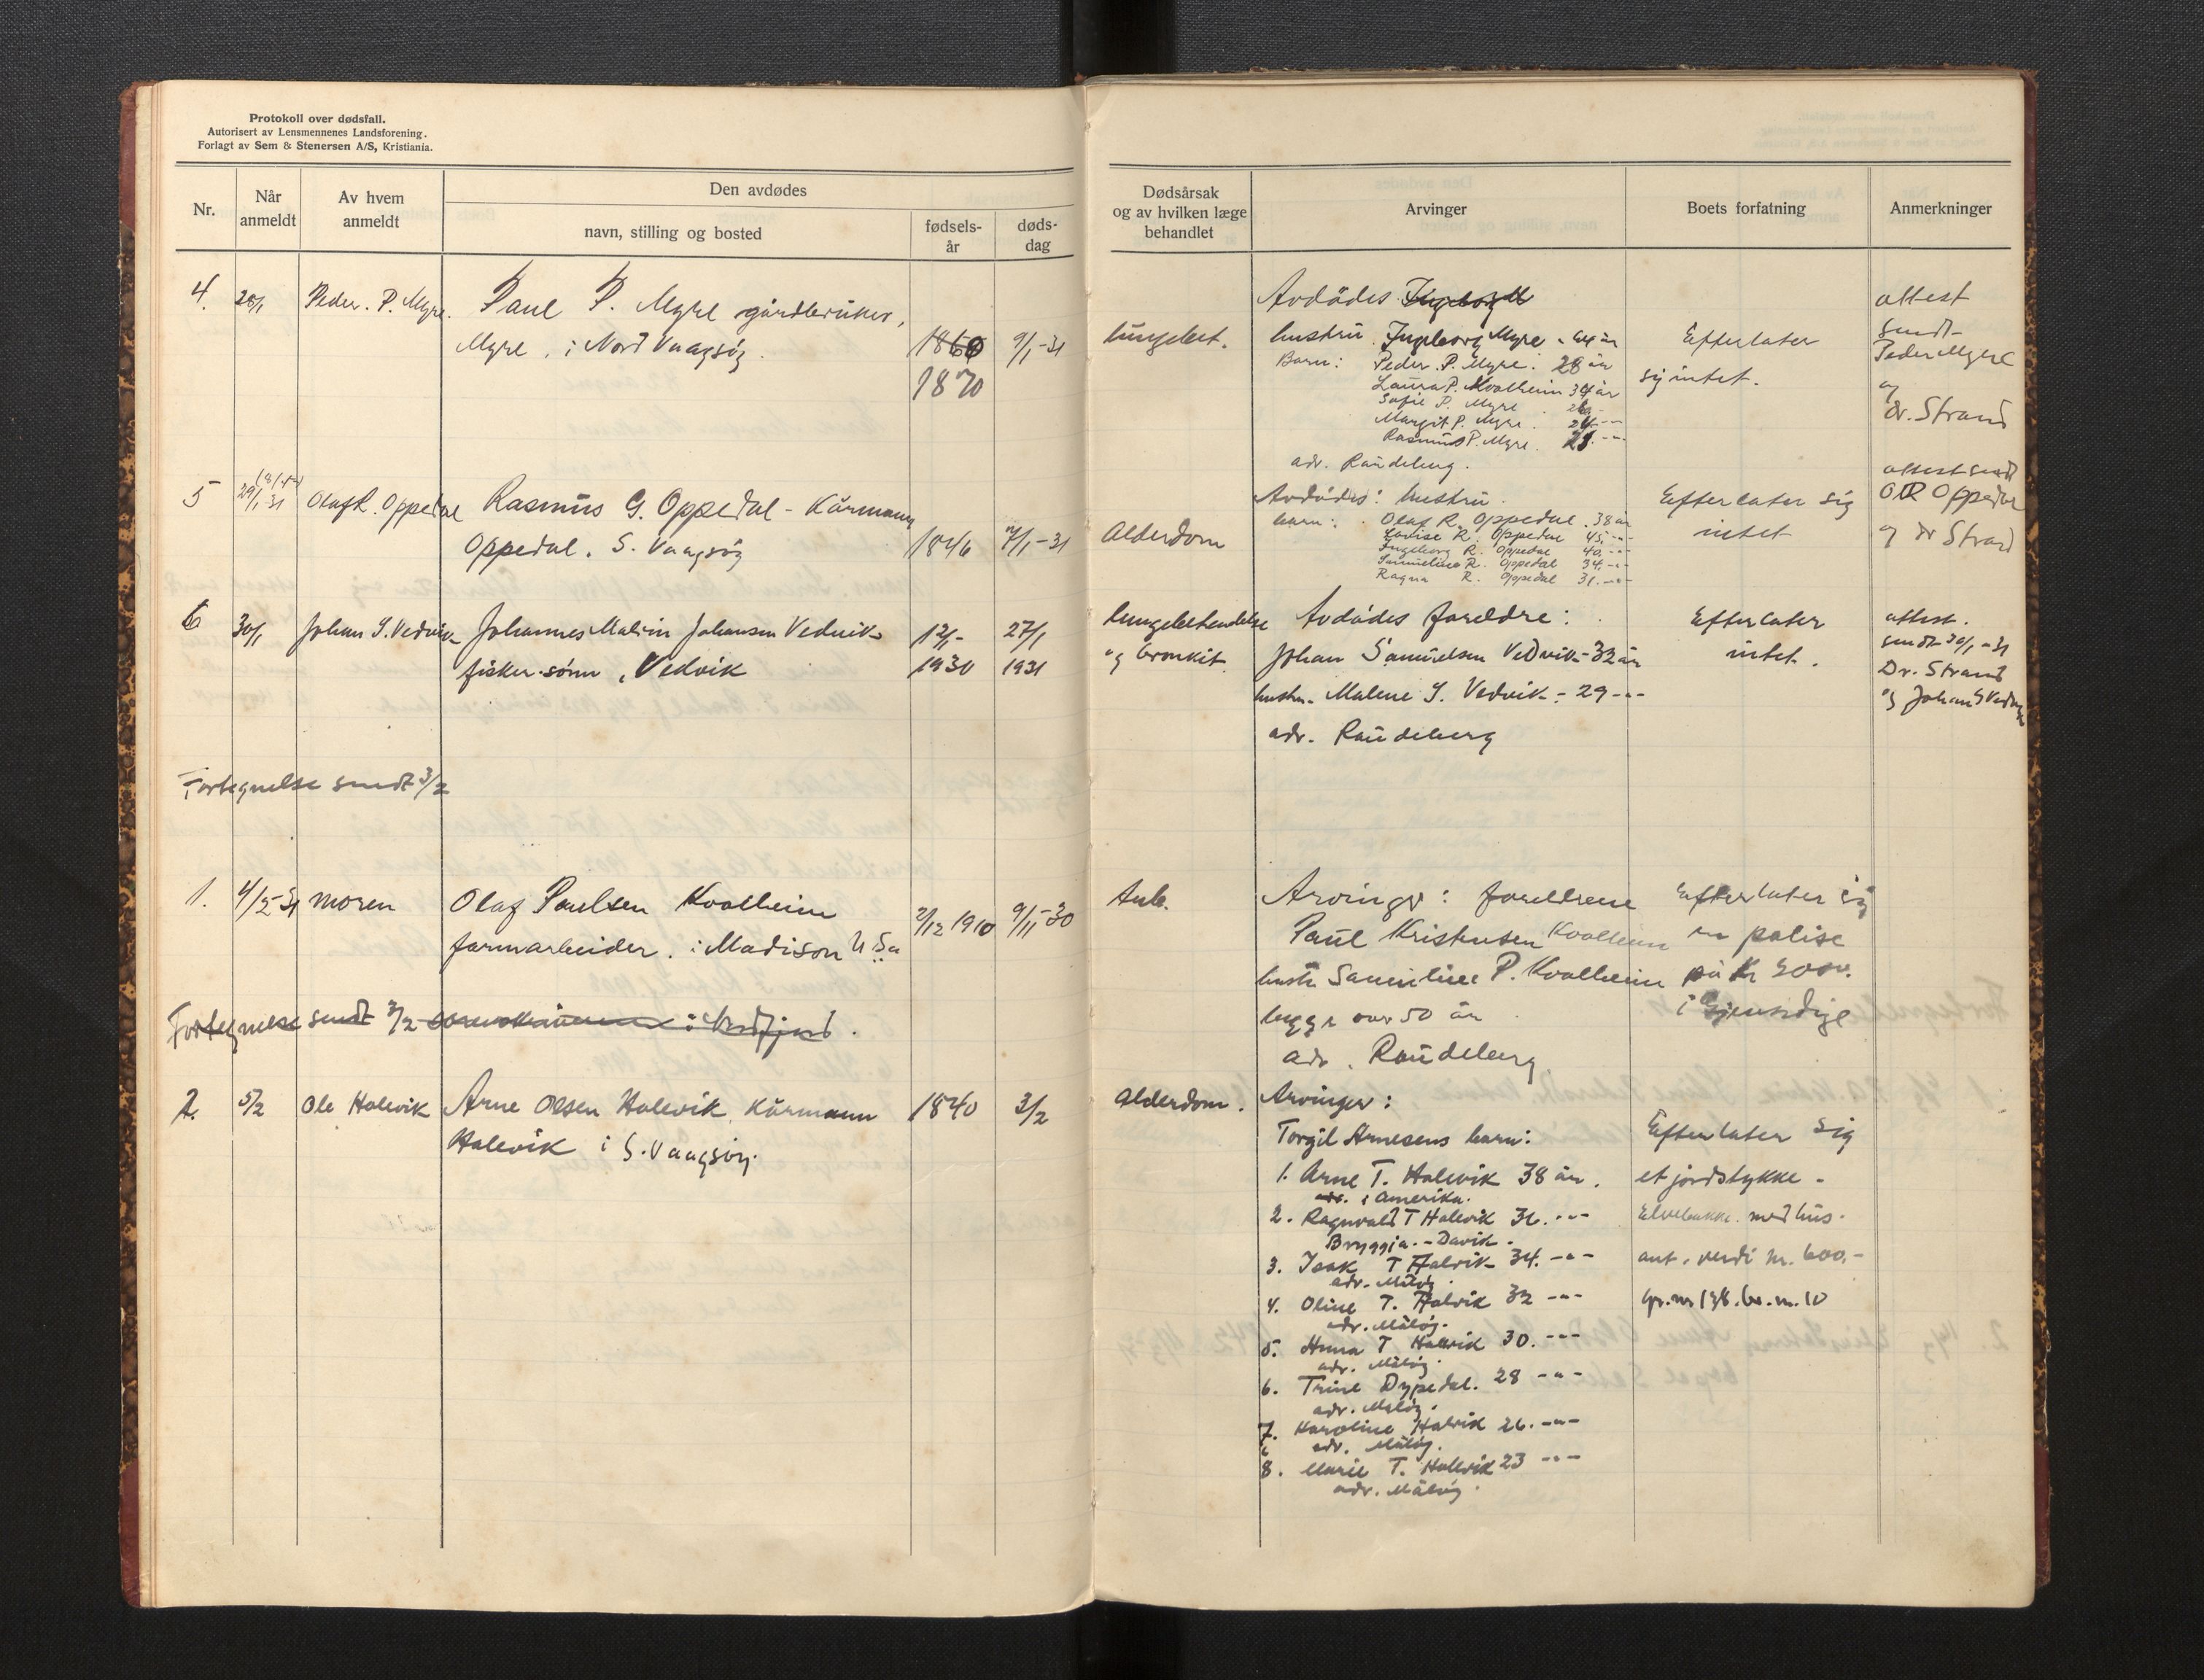 Protokoll over dødsfall.
Autorisert av Lensmennenes Landsforening.
Forlagt av Sem & Stenersen A/S, Kristiania.
Nr.
Når anmeldt
Av hvem anmeldt
Den avdødes
navn, stilling og bosted
fødsels-år
døds-dag
Dødsårsak og av hvilken læge behandlet
Arvinger
Boets forfatning
Anmerkninger
4. 28/1 Peder. P. Myre. Paul P. Myre gårdbruker,
Myre, i Nord Vaagsøy. 1860 9/1-31
1870
lungebet.
Avdødes Ingeborg
hustru Ingeborg Myre - 64 år
Barn: Peder P. Myre. 28 år
Laura P. Kvalheim 34 år
Sofie P. Myre
Margit P. Myre. 24 -"-
Rasmus P. Myre. 21 -"-
adr. Raudeberg.
Efterlater
sig intet.
attest
sendt
Peder Myre
og
dr. Strand
5 29/1-31 Olaf R. Oppedal Rasmus G. Oppedal - Kårmann
Oppedal. S. Vaagsøy 1846 -31
Alderdom
Avdødes: hustru.
barn: Olaf R. Oppedal. 38 år
Lovise R. Oppedal 45. -"-
Ingeborg R. Oppedal 40. -"-
Samueline R. Oppedal 34. -"-
Ragna R. Oppedal 31. -"-
Efterlater sig
intet
attest sendt
O R Oppedal
og dr Strand
6 30/1 Johan S. Vedvik Johannes Malvin Johansen Vedvik
fisker-sønn, Vedvik
1930
27/1
1931
lungebetendelse
og bronkit.
Avdødes foreldre:
Johan Samuelsen Vedvik - 32 år
hustru. Malene S. Vedvik - 29 -"-
adr. Raudeberg
Efterlater
intet.
attest.
sendt 30/1-31
Dr. Strand
og Johan S Vedvik
Fortegnelse sendt 3/2
1. 4/2-31 moren Olaf Paulsen Kvalheim
farmarbeider. i Madison U.S.a
2/12 1910 9/11-30
Tub.
Arvinger: foreldrene
Paul Kristensen Kvalheim
hustr Samueline P. Kvalheim
begge over 50 år
adr. Raudeberg.
Efterlater sig
en polise
på Kr
i Gjensidige
Fortegnelse sendt 3/2
2. 5/2 Ole Halevik Arne Olsen Halevik, Kårmann
Halevik i S. Vaagsøy. 1840 3/2
Alderdom.
Arvinger:
Torgil Arnesens barn:
1. Arne T. Halevik 38 år.
adr. i Amerika.
2. Ragnvald T Halevik 36. -"-
Bryggja. - Davik.
3. Isak T Halvik 34. -"-
adr. Måløy.
4. Oline T. Halvik 32 -"-
adr. Måløy.
5. Anna T Halevik 30. -"-
adr. Måløy.
6. Trine Dypedal. 28 -"-
adr. Måløy.
7. Karoline Halvik 26. -"-
adr. Måløy.
8. Marie T. Halevik 23 -"-
adr. Måløy.
Efterlater sig
et jordstykke -
Elvebakke. med hus.
ant. verdi kr. 600.-
gr. nr 138. br. nr. 10